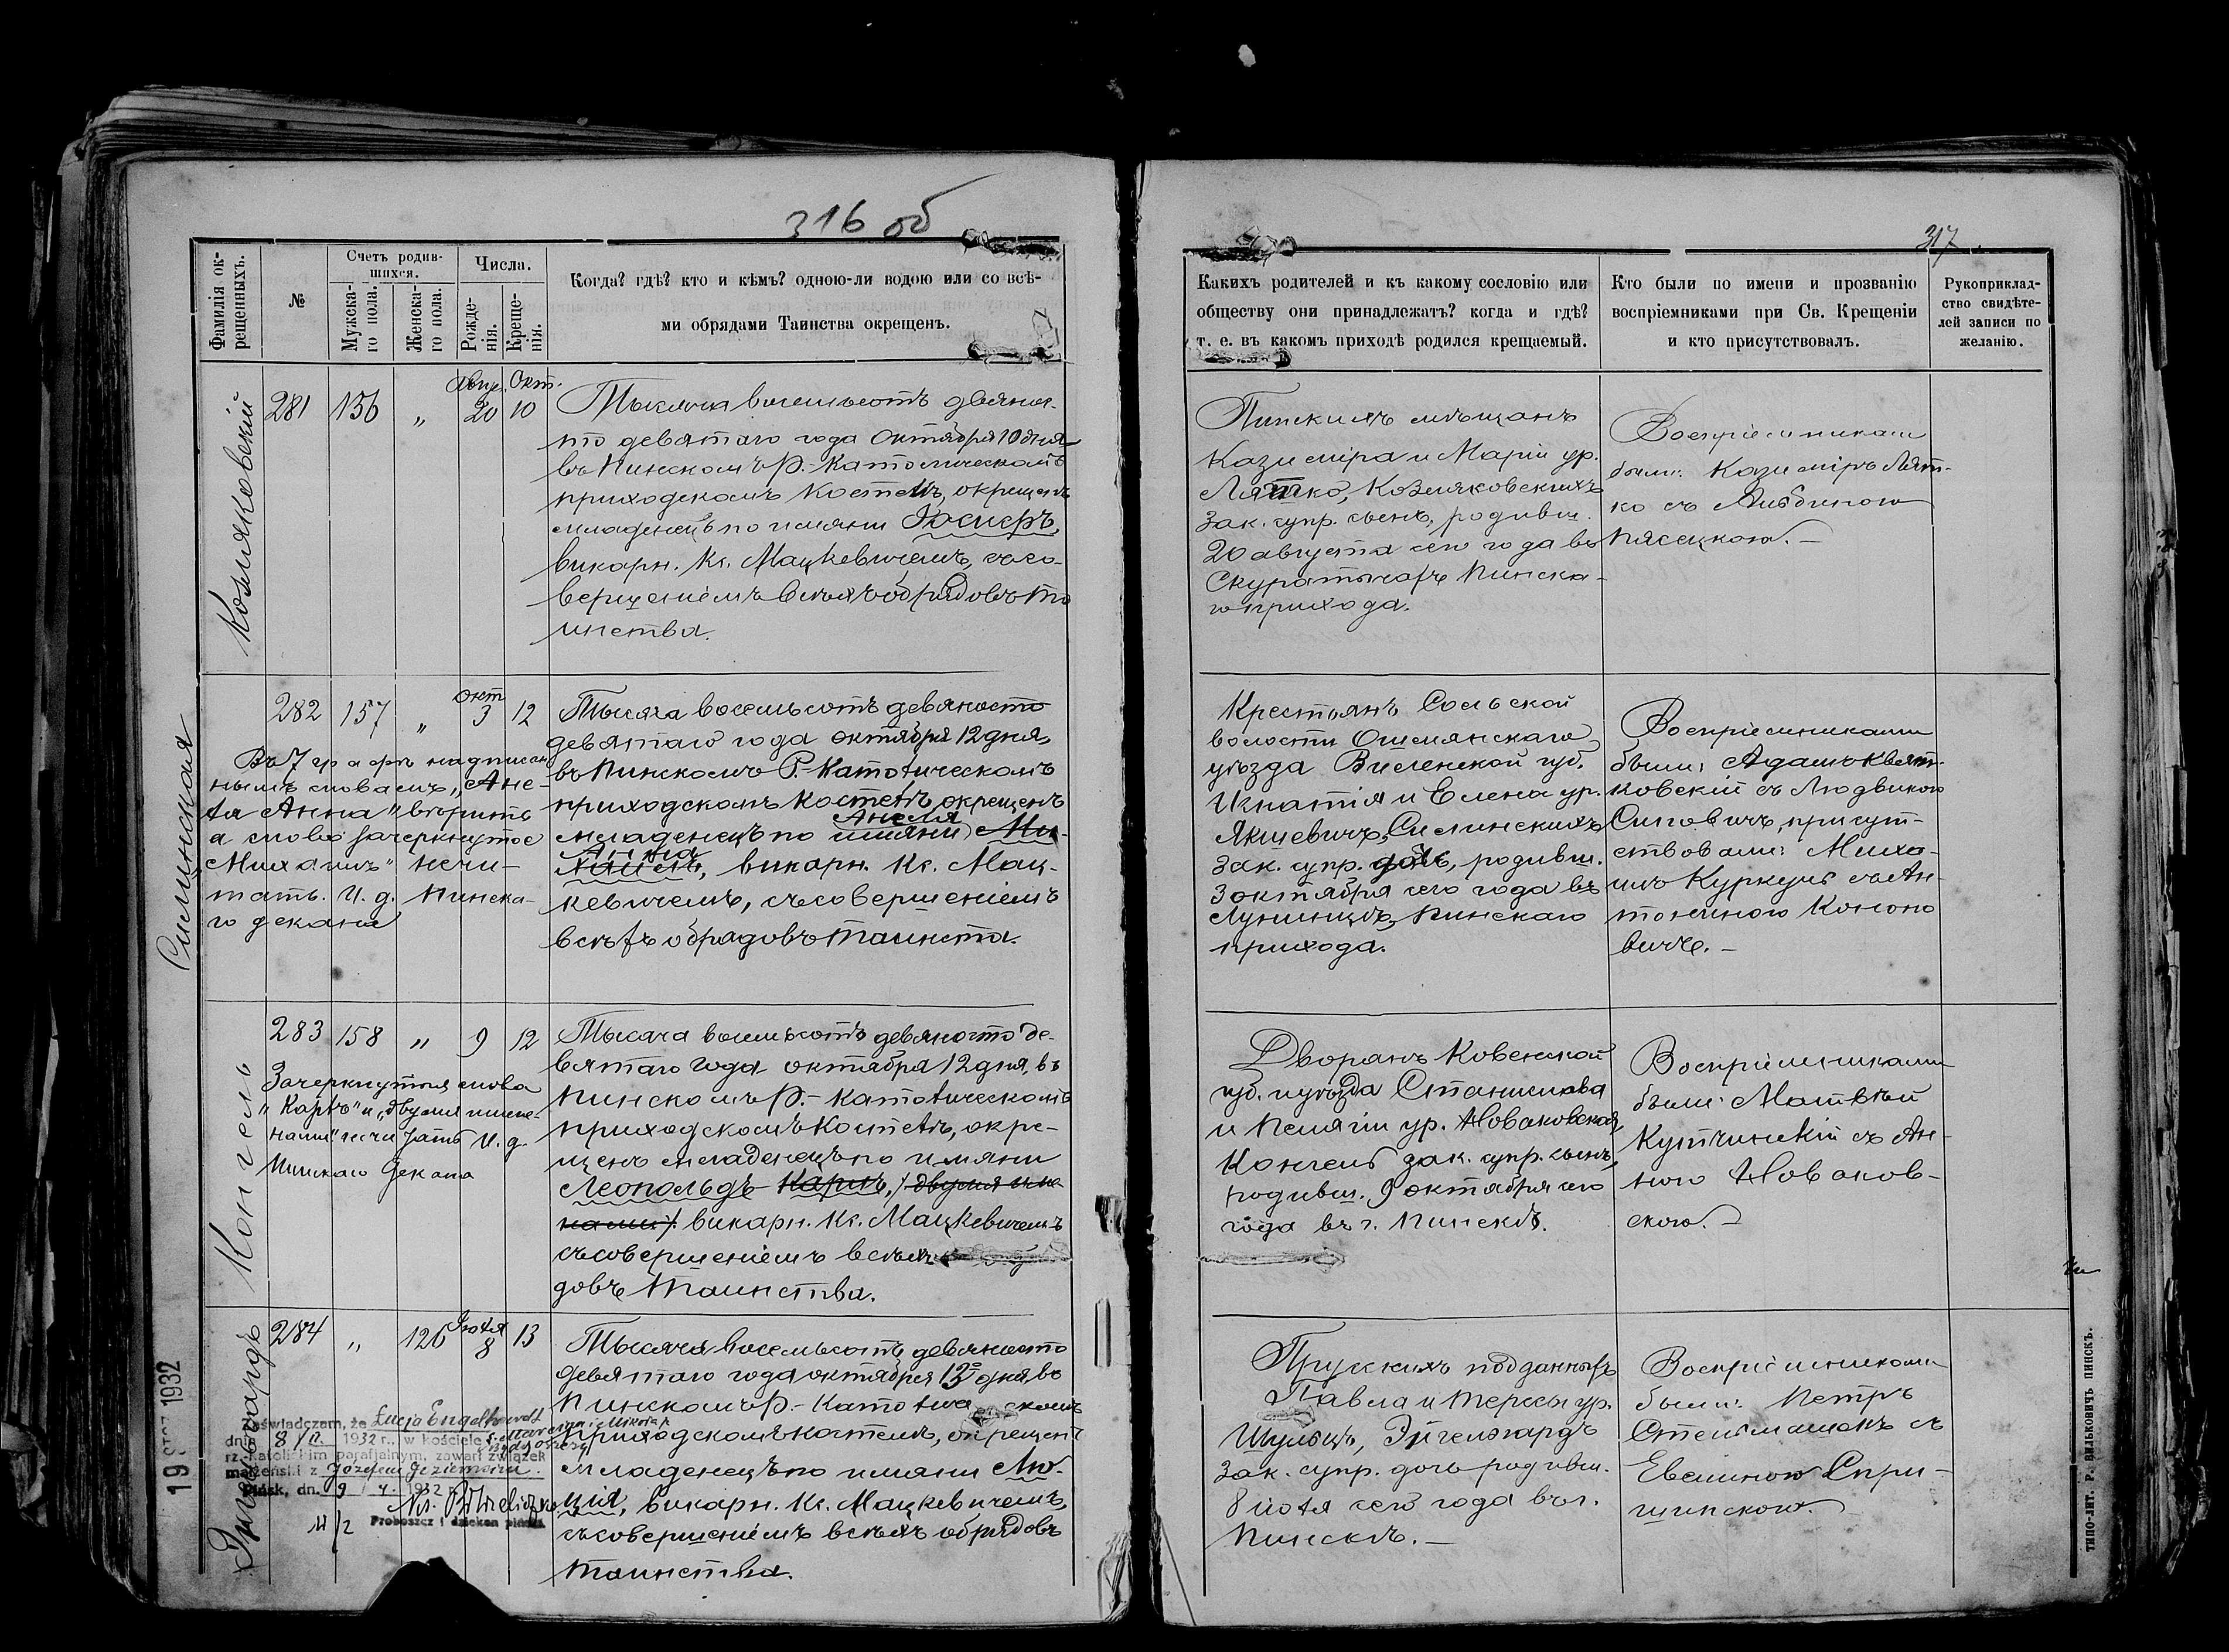 316 об
Фамилія ок-
рещенныхъ.
№
Счетъ родив-
шихся.
Мужска-
го пола.
Женска-
го пола.
Числа.
Рожде-
нія.
Креще-
нія.
Когда? гдѣ? кто и кѣмъ? одною-ли водою или со всѣ-
ми обрядами Таинства окрещенъ.
Козляковскій
281 156 „ Авгус. 20 Окт. 10
Тысяча восемьсотъ девянос-
то девятаго года Октября 10 дня
въ Пинскомъ Р.-Католическомъ
приходскомъ Костелѣ, окрещенъ
младенецъ по имяни
викарн. Кс. Мацкевичемъ, съ со-
вершеніемъ всѣхъ обрядовъ Та
инства.
Силинская
282 157 „ окт 3 12
Въ 7 графѣ надписан
нымъ словамъ „Ане-
ля Анна" вѣрить
а слово зачеркнутое
„Михаилъ" не чи-
тать. И. д. Пинска-
го декана
Тысяча восемьсотъ девяносто
девятаго года октября 12 дня,
въ Пинскомъ Р.-Католическомъ
приходскомъ Костелѣ окрещенъ
Анеля
младенецъ по имяни Ми-
Анна
хаилъ, викарн. Кс. Мац-
кевичемъ, съ совершеніемъ
всѣхъ обрядовъ Таинства.
Кончель
283 158 „ 9 12
Зачеркнутыя слова
„Карлъ" и „двумя име-
нами" не читать И. д.
Пинскаго Декана
Тысяча восемьсотъ девяносто де-
вятаго года октября 12 дня, въ
Пинскомъ Р.-Католическомъ
приходскомъ Костелѣ, окре-
щенъ младенецъ по имяни
Леопольдъ Карлъ, /двумя име
нами/ викарн. Кс. Мацкевичемъ
съ совершеніемъ всѣхъ
довъ Таинства.
Энгельгардъ
284 „ 126 Іюля 8 13
Тысяча восемьсотъ девяносто
девятаго года октября 13 дня, въ
Пинскомъ Р.-Католическомъ
приходскомъ костелѣ, окрещенъ
младенецъ по имяни Лю-
ція, викарн. Кс. Мацкевичемъ,
съ совершеніемъ всѣхъ обрядовъ
Таинства.
Zaświadczam, że Łucja Engelhardt
dnia 8/II. 1932 r., w kościele
rz. katolickim parafjalnym, zawarł związek
małżeński z Józefem
Pińsk, dn. 9 1932 r.
Proboszcz i dziekan piński
1932
317
Какихъ родителей и къ какому сословію или
обществу они принадлежатъ? когда и гдѣ?
т. е. въ какомъ приходѣ родился крещаемый.
Кто были по имени и прозванію
воспріемниками при Св. Крещеніи
и кто присутствовалъ.
Рукоприклад-
ство свидѣте-
лей записи по
желанію.
Пинскихъ мѣщанъ
Казиміра и Маріи ур.
Лятко, Козляковскихъ
зак. супр. сынъ, родивш.
20 августа сего года въ
Скуратичахъ Пинска-
го прихода.
Воспріемниками
были: Казиміръ Лят-
ко съ Альбиною
Пясецкою.—
Крестьянъ Сольской
волости Ошмянскаго
уѣзда Виленской губ.
Игнатія и Елена ур.
Якшевичъ, Силинскихъ
зак. супр. дочь, родивш.
3 октября сего года въ
Лунинцѣ, Пинскаго
прихода.
Воспріемниками
были: Адамъ Квят-
ковскій съ Людвикою
Силовичъ, присут-
ствовали: Миха-
илъ Куркуль съ Ан-
тониною Конono
вичъ.—
Дворянъ Ковенской
губ. и уѣзда Станислава
и Пелягіи ур. Новаковская,
Кончель зак. супр. сынъ,
родивш. 9 октября сего
года въ г. Пинскѣ.
Воспріемниками
были: Матвѣй
Кутчинскій съ Ан-
ною Новаков-
скою.—
Прусскихъ подданныхъ
Павла и Тересы ур.
Шульцъ, Энгельгардъ
зак. супр. дочь родивш.
8 іюля сего года въ г.
Пинскѣ.—
Воспріемниками
были: Петръ
Стельмашокъ съ
Евелиною Спри-
шинскою.
ТИПО-ЛИТ. Р. ВИЛЬКОВИЧЪ ПИНСКЪ.